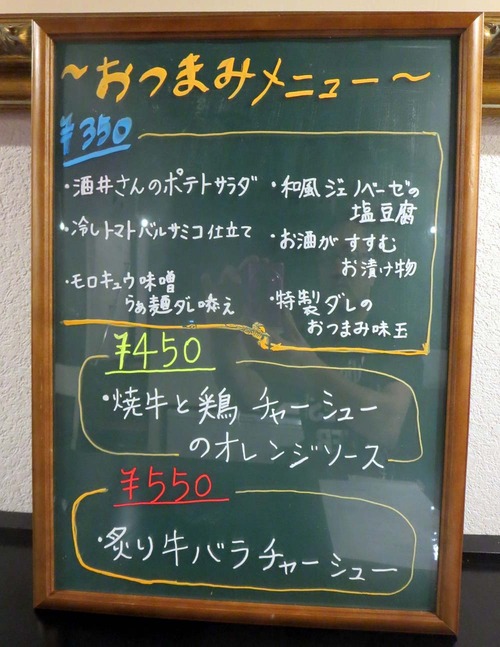 ～おつまみメニュー～
￥350
・酒井さんのポテトサラダ
・冷しトマトバルサミコ仕立て
・モロキュウ味噌
らぁ麺ダレ添え
・和風ジェノベーゼの
塩豆腐
・お酒がすすむ
お漬け物
・特製ダレの
おつまみ味玉
￥450
・焼牛と鶏チャーシュー
のオレンジソース
￥550
・炙り牛バラチャーシュー